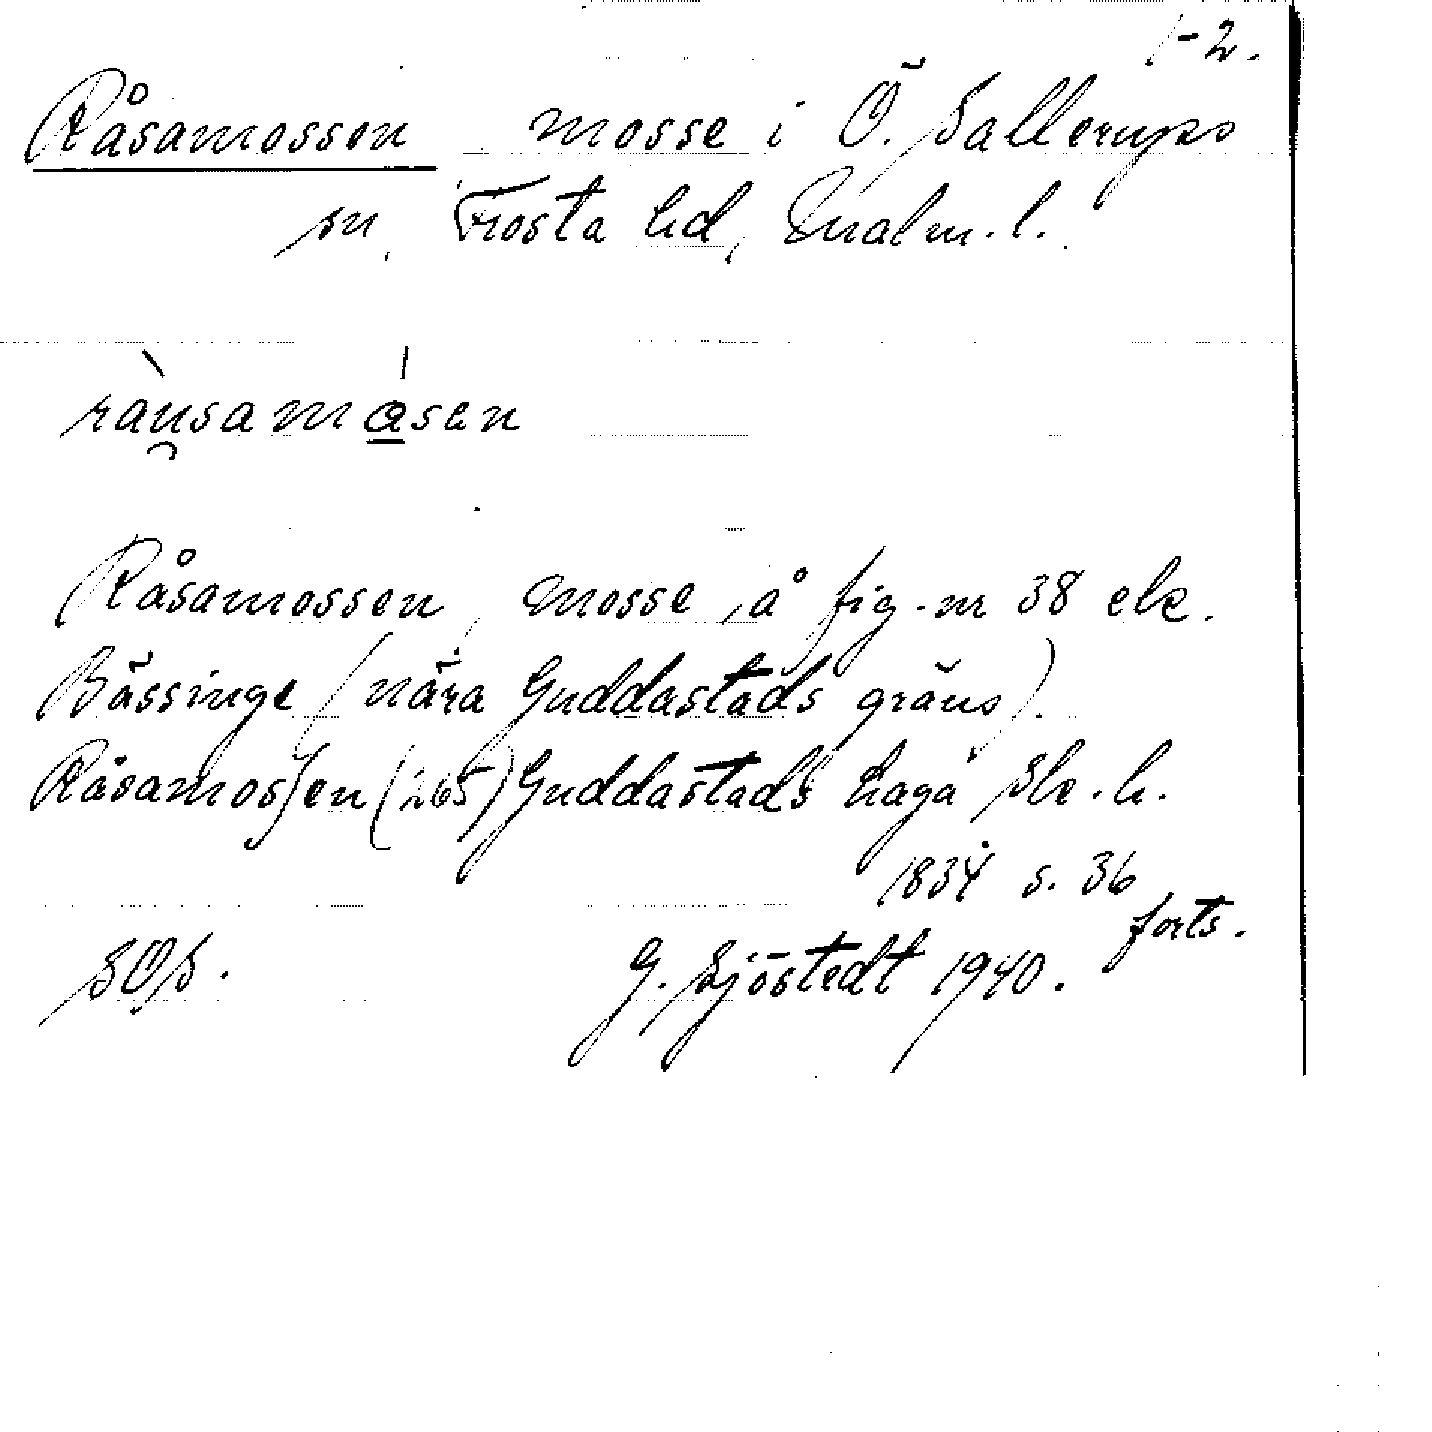 1-2.
Råsamossen mosse i Ö. Sallerups
sn, Frosta hd, Malm. l.
ràu̯samásen
Råsamossen, mosse, å fig. nr 38 ek.
Bässinge (nära Guddastads gräns).
Råsamossen (265) Guddastads haga Sk. h.
1834 s. 36
forts.
SOS. G. Sjöstedt 1940.